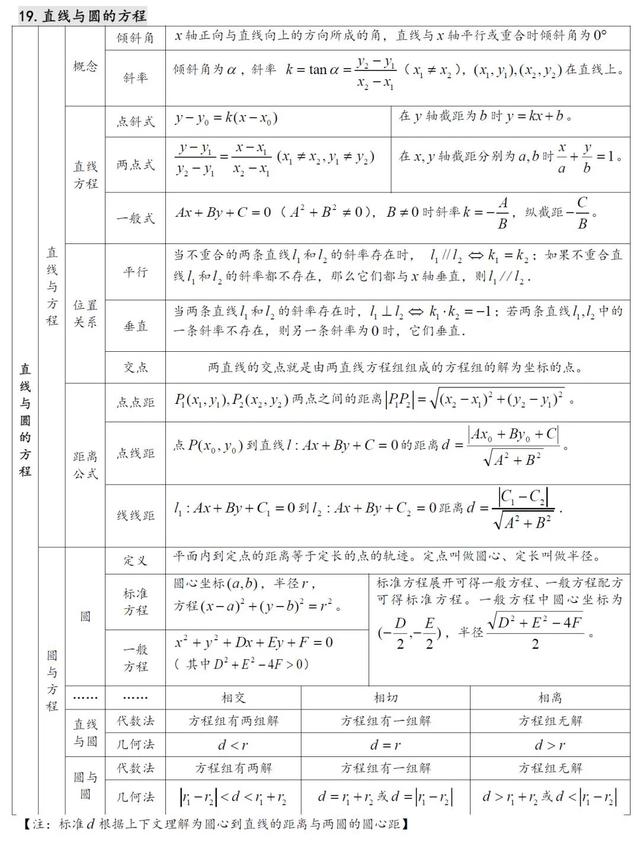 19.直线与圆的方程
直线与圆的方程
直线与方程
概念
倾斜角
x 轴正向与直线向上的方向所成的角，直线与 x 轴平行或重合时倾斜角为 0°
斜率
倾斜角为 α，斜率 k = tan α = (y₂ − y₁)/(x₂ − x₁)（x₁ ≠ x₂），(x₁, y₁),(x₂, y₂) 在直线上。
直线方程
点斜式
y − y₀ = k(x − x₀)
在 y 轴截距为 b 时 y = kx + b。
两点式
(y − y₁)/(y₂ − y₁) = (x − x₁)/(x₂ − x₁) (x₁ ≠ x₂, y₁ ≠ y₂)
在 x, y 轴截距分别为 a, b 时 x/a + y/b = 1。
一般式
Ax + By + C = 0（A² + B² ≠ 0），B ≠ 0 时斜率 k = −A/B，纵截距 −C/B。
位置关系
平行
当不重合的两条直线 l₁ 和 l₂ 的斜率存在时， l₁ // l₂ ⇔ k₁ = k₂；如果不重合直
线 l₁ 和 l₂ 的斜率都不存在，那么它们都与 x 轴垂直，则 l₁ // l₂．
垂直
当两条直线 l₁ 和 l₂ 的斜率存在时，l₁ ⊥ l₂ ⇔ k₁·k₂ = −1；若两条直线 l₁, l₂ 中的
一条斜率不存在，则另一条斜率为 0 时，它们垂直．
交点
两直线的交点就是由两直线方程组组成的方程组的解为坐标的点。
距离公式
点点距
P₁(x₁, y₁), P₂(x₂, y₂) 两点之间的距离 |P₁P₂| = √((x₂ − x₁)² + (y₂ − y₁)²)。
点线距
点 P(x₀, y₀) 到直线 l : Ax + By + C = 0 的距离 d = |Ax₀ + By₀ + C|/√(A² + B²)。
线线距
l₁ : Ax + By + C₁ = 0 到 l₂ : Ax + By + C₂ = 0 距离 d = |C₁ − C₂|/√(A² + B²)．
圆与方程
圆
定义
平面内到定点的距离等于定长的点的轨迹。定点叫做圆心、定长叫做半径。
标准方程
圆心坐标 (a, b)，半径 r，
方程 (x − a)² + (y − b)² = r²。
标准方程展开可得一般方程、一般方程配方
可得标准方程。一般方程中圆心坐标为
(−D/2, −E/2)，半径 √(D² + E² − 4F)/2。
一般方程
x² + y² + Dx + Ey + F = 0
（其中 D² + E² − 4F > 0）
…… …… 相交 相切 相离
直线与圆
代数法 方程组有两组解 方程组有一组解 方程组无解
几何法 d < r d = r d > r
圆与圆
代数法 方程组有两解 方程组有一组解 方程组无解
几何法 |r₁ − r₂| < d < r₁ + r₂ d = r₁ + r₂ 或 d = |r₁ − r₂| d > r₁ + r₂ 或 d < |r₁ − r₂|
【注：标准 d 根据上下文理解为圆心到直线的距离与两圆的圆心距】